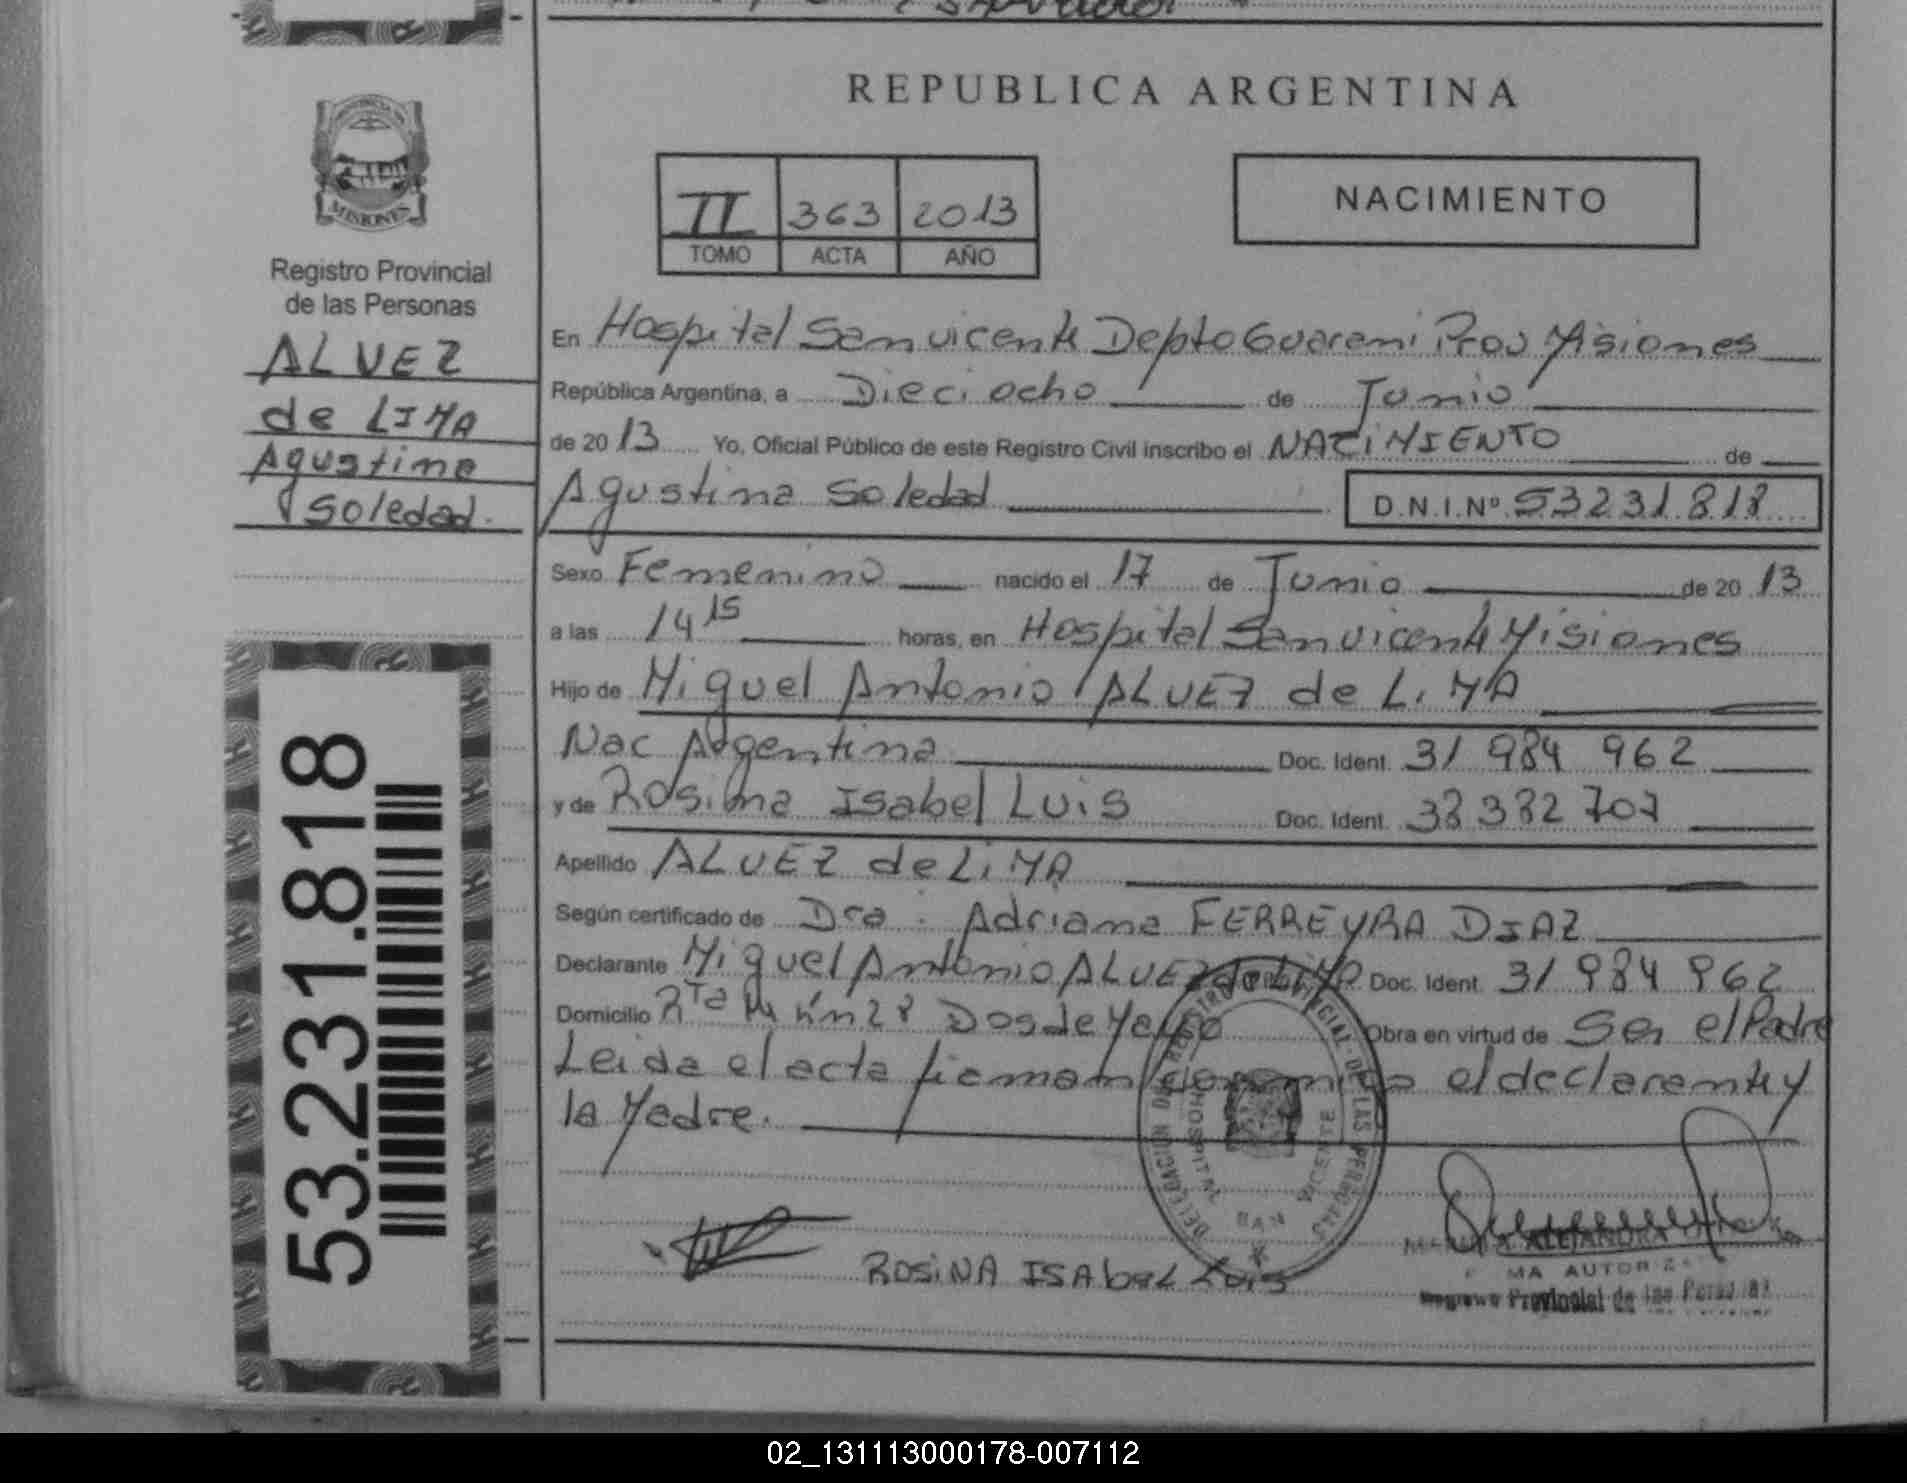 Salvador
REPUBLICA ARGENTINA
PROVINCIA DE
MISIONES
II 363 2013
TOMO ACTA AÑO
NACIMIENTO
Registro Provincial
de las Personas
ALVEZ
de LIMA
Agustina
Soledad.
En Hospital San vicente Depto Guarani Prov Misiones
República Argentina, a Dieci ocho de Junio
de 20 13 Yo, Oficial Público de este Registro Civil inscribo el NACIMIENTO de
Agustina Soledad D.N.I.Nº 53231.818
Sexo Femenino nacido el 17 de Junio de 20 13
a las 14 15 horas, en Hospital San vicente Misiones
Hijo de Miguel Antonio ALVEZ de LiMA
Nac Argentina Doc. Ident. 31 984 962
y de Rosina Isabel Luis Doc. Ident. 38 382 707
Apellido ALVEZ de LiMA
Según certificado de Dra. Adriana FERREYRA DIAZ
Declarante Miguel Antonio ALVEZ de LiMA Doc. Ident. 31 984 962
Domicilio Rta Dos de Mayo Obra en virtud de Ser el Padre
Leida el acta firman conmigo el declarante y
la Madre.
DELEGACION DEL REGISTRO PROVINCIAL DE LAS PERSONAS
HOSPITAL SAN VICENTE
ROSiNA ISAbeL Luis
ALEJANDRA
Provincial de las
53.231.818
02_131113000178-007112